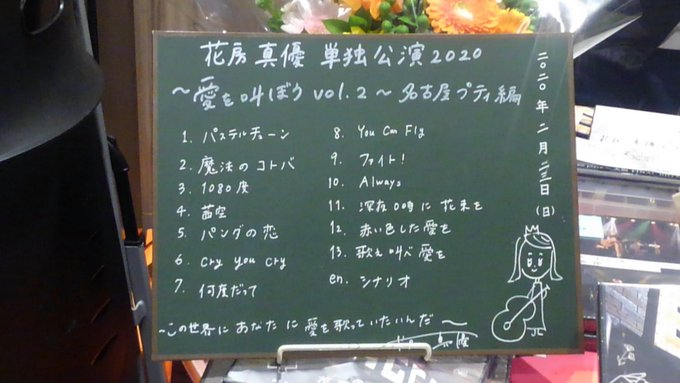 花房真優 単独公演2020
～愛を叫ぼう vol.2～名古屋プティ編
二〇二〇年二月二三日(日)
1. パステルチューン
2. 魔法のコトバ
3. 1080度
4. 茜空
5. パングの恋
6. cry you cry
7. 何度だって
8. You Can Fly
9. ファイト!
10. Always
11. 深夜0時に花束を
12. 赤い色した愛を
13. 歌え叫べ愛を
en. シナリオ
～この世界にあなたに愛を歌っていたいんだ～